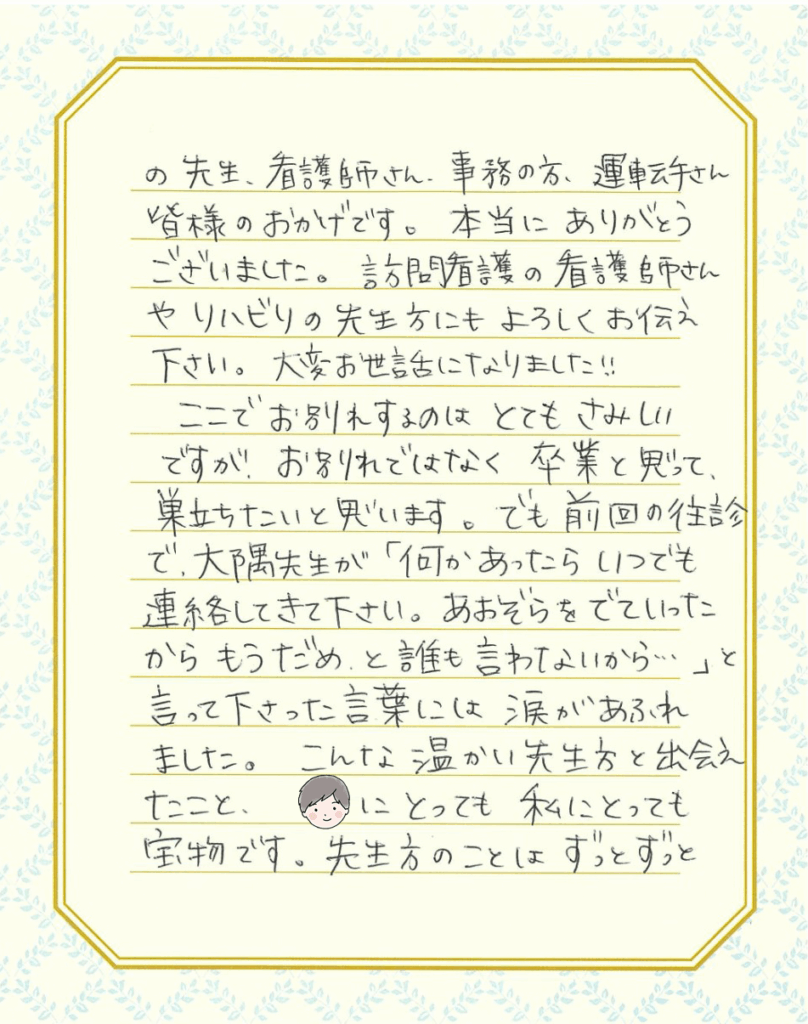 の先生、看護師さん、事務の方、運転手さん
皆様のおかげです。本当にありがとう
ございました。訪問看護の看護師さん
やリハビリの先生方にもよろしくお伝え
下さい。大変お世話になりました!!
ここでお別れするのはとてもさみしい
ですが、お別れではなく卒業と思って、
巣立ちたいと思います。でも前回の往診
で、大隅先生が「何かあったらいつでも
連絡してきて下さい。あおぞらをでていった
からもうだめ、と誰も言わないから…」と
言って下さった言葉には涙があふれ
ました。こんな温かい先生方と出会え
たこと、にとっても私にとっても
宝物です。先生方のことはずっとずっと